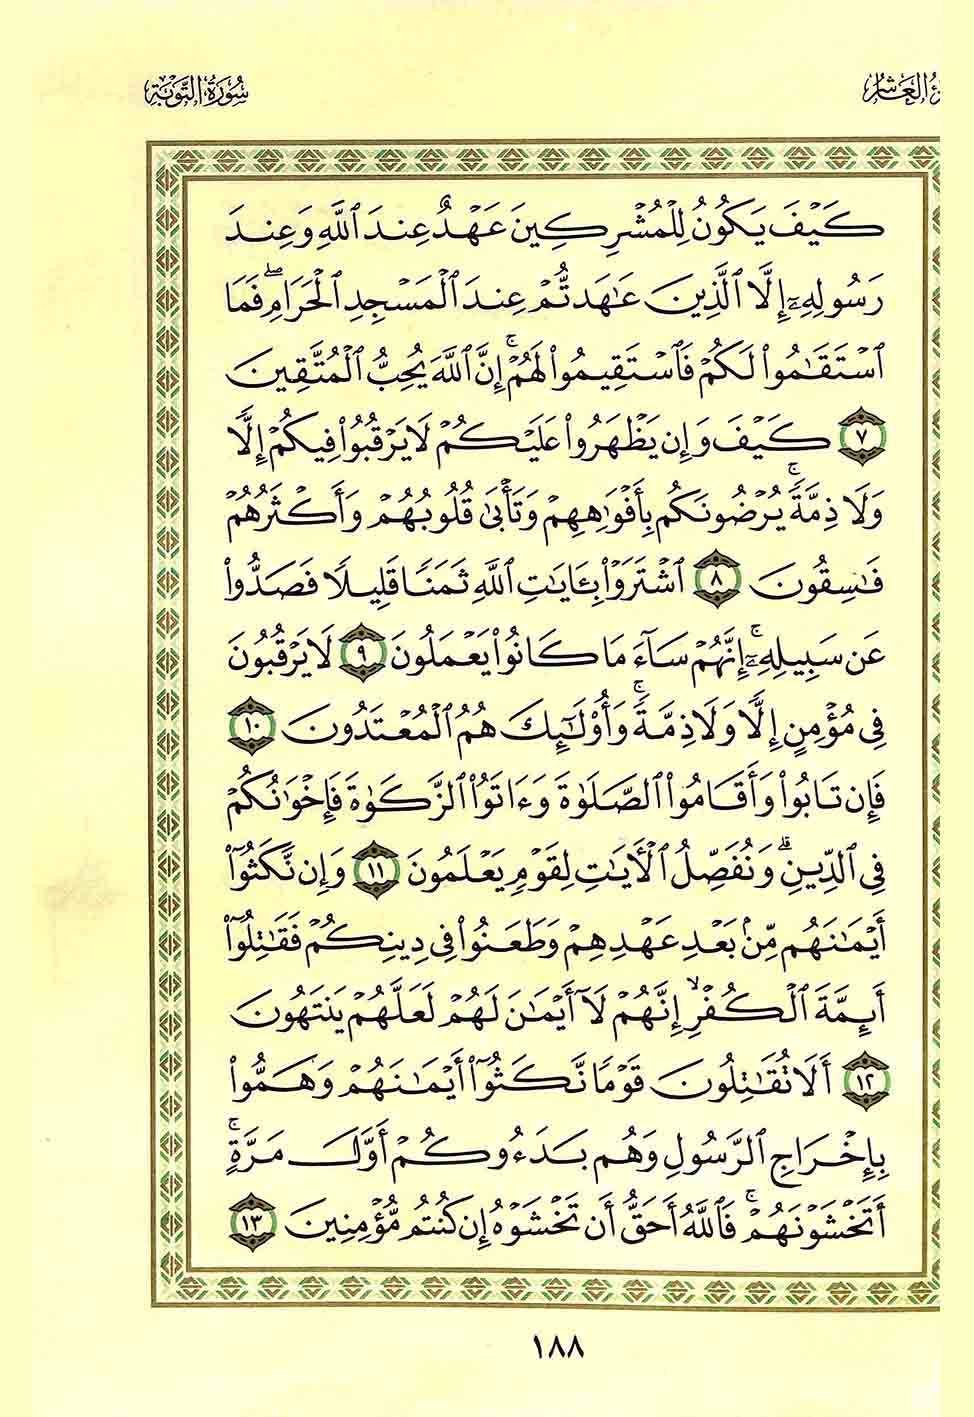 سُورَةُ التَّوْبَةِ
العَاشِر
كَيْفَ يَكُونُ لِلْمُشْرِكِينَ عَهْدٌ عِندَ ٱللَّهِ وَعِندَ
رَسُولِهِۦٓ إِلَّا ٱلَّذِينَ عَٰهَدتُّمْ عِندَ ٱلْمَسْجِدِ ٱلْحَرَامِۖ فَمَا
ٱسْتَقَٰمُوا۟ لَكُمْ فَٱسْتَقِيمُوا۟ لَهُمْۚ إِنَّ ٱللَّهَ يُحِبُّ ٱلْمُتَّقِينَ
٧ كَيْفَ وَإِن يَظْهَرُوا۟ عَلَيْكُمْ لَا يَرْقُبُوا۟ فِيكُمْ إِلًّا
وَلَا ذِمَّةًۚ يُرْضُونَكُم بِأَفْوَٰهِهِمْ وَتَأْبَىٰ قُلُوبُهُمْ وَأَكْثَرُهُمْ
فَٰسِقُونَ ٨ ٱشْتَرَوْا۟ بِـَٔايَٰتِ ٱللَّهِ ثَمَنًا قَلِيلًا فَصَدُّوا۟
عَن سَبِيلِهِۦٓۚ إِنَّهُمْ سَآءَ مَا كَانُوا۟ يَعْمَلُونَ ٩ لَا يَرْقُبُونَ
فِى مُؤْمِنٍ إِلًّا وَلَا ذِمَّةًۚ وَأُو۟لَٰٓئِكَ هُمُ ٱلْمُعْتَدُونَ ١٠
فَإِن تَابُوا۟ وَأَقَامُوا۟ ٱلصَّلَوٰةَ وَءَاتَوُا۟ ٱلزَّكَوٰةَ فَإِخْوَٰنُكُمْ
فِى ٱلدِّينِۗ وَنُفَصِّلُ ٱلْـَٔايَٰتِ لِقَوْمٍ يَعْلَمُونَ ١١ وَإِن نَّكَثُوٓا۟
أَيْمَٰنَهُم مِّنۢ بَعْدِ عَهْدِهِمْ وَطَعَنُوا۟ فِى دِينِكُمْ فَقَٰتِلُوٓا۟
أَئِمَّةَ ٱلْكُفْرِۙ إِنَّهُمْ لَآ أَيْمَٰنَ لَهُمْ لَعَلَّهُمْ يَنتَهُونَ
١٢ أَلَا تُقَٰتِلُونَ قَوْمًا نَّكَثُوٓا۟ أَيْمَٰنَهُمْ وَهَمُّوا۟
بِإِخْرَاجِ ٱلرَّسُولِ وَهُم بَدَءُوكُمْ أَوَّلَ مَرَّةٍۚ
أَتَخْشَوْنَهُمْۚ فَٱللَّهُ أَحَقُّ أَن تَخْشَوْهُ إِن كُنتُم مُّؤْمِنِينَ ١٣
١٨٨